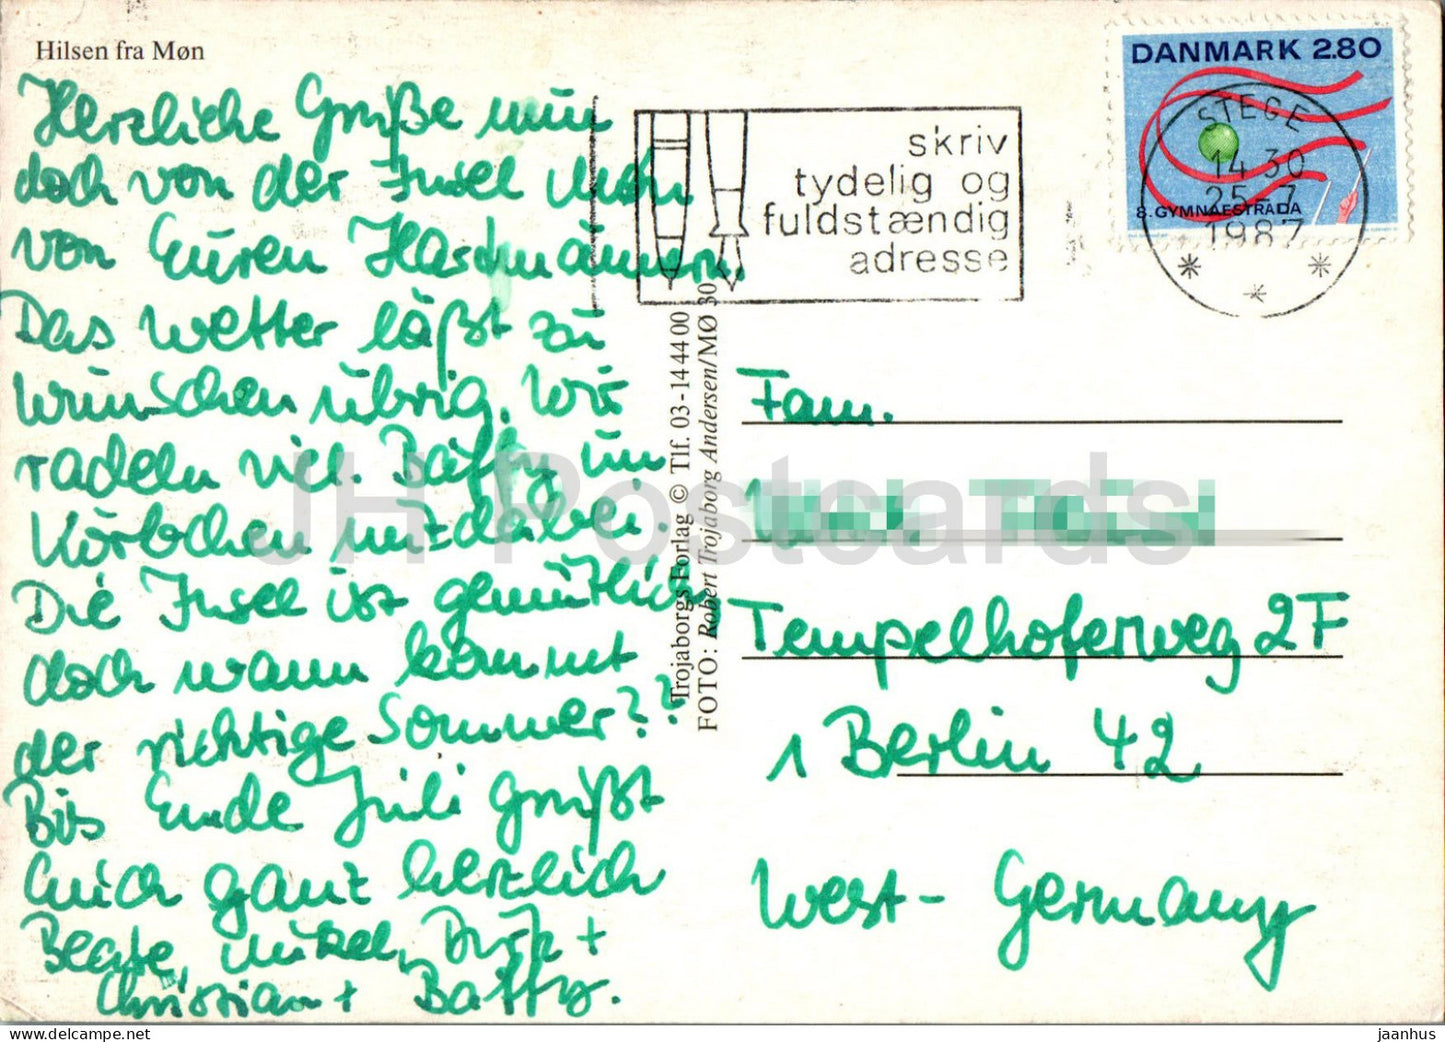 Hilsen fra Møn
Herzliche Grüße nun
doch von der Insel Møn
von Euren
Das Wetter läßt zu
wünschen übrig. Wir
radeln viel. Baffy im
Körbchen mit dabei.
Die Insel ist gemütlich
doch wann kommt
der richtige Sommer??
Bis Ende Juli grüßt
Euch ganz herzlich
Beate, Dirk +
Christian + Baffy.
skriv
tydelig og
fuldstændig
adresse
DANMARK 2.80
8. GYMNAESTRADA
STEGE
14 30
25-7
1987
Trojaborgs Forlag © Tlf. 03-14 44 00
FOTO: Robert Trojaborg Andersen/MØ 30
Fam.
Tempelhoferweg 2F
1 Berlin 42
West-Germany
JH Postcards
jaanhus
https://jhpostcards.com